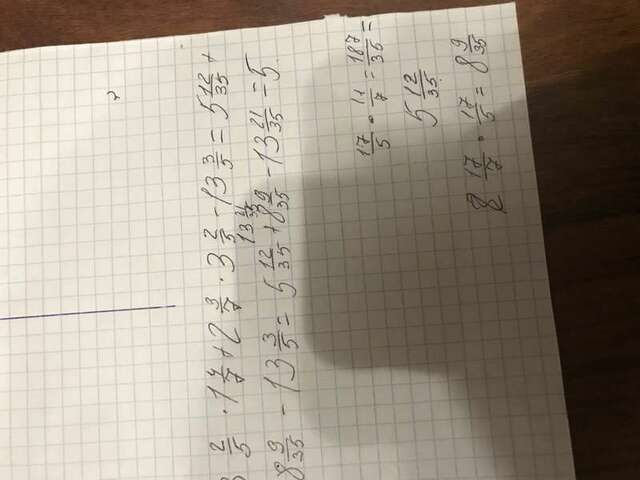 2/5 · 1 4/7 + 2 3/7 · 3 2/5 - 13 3/5 = 5 12/35 +
8 9/35 - 13 3/5 = 5 12/35 + 8 9/35 - 13 21/35 = 5
17/5 · 11/7 = 187/35 =
5 12/35
17/7 · 17/5 = 8 9/35